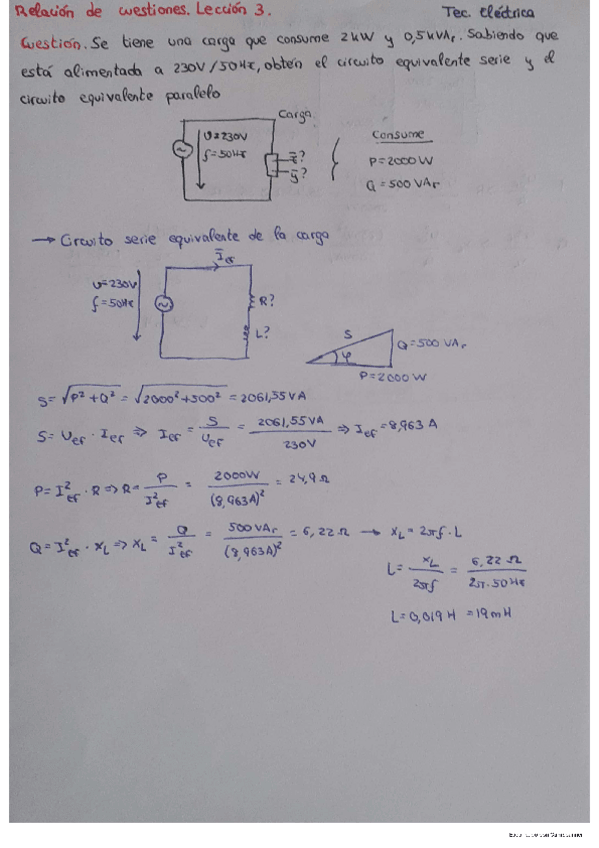 Relación de cuestiones. Lección 3. Tec. Eléctrica
Cuestión. Se tiene una carga que consume 2kW y 0,5kVAr. Sabiendo que
está alimentada a 230V/50Hz, obtén el circuito equivalente serie y el
circuito equivalente paralelo
Carga
U=230V
f=50Hz
z̄?
ȳ?
Consume
P=2000W
Q=500VAr
→ Circuito serie equivalente de la carga
Īef
U=230V
f=50Hz
R?
L?
S
φ
Q=500VAr
P=2000W
S=√P²+Q² = √2000²+500² = 2061,55VA
S=Uef·Ief ⇒ Ief = S/Uef = 2061,55VA/230V ⇒ Ief=8,963A
P=I²ef·R ⇒ R= P/I²ef = 2000W/(8,963A)² = 24,9Ω
Q=I²ef·XL ⇒ XL= Q/I²ef = 500VAr/(8,963A)² = 6,22Ω → XL=2πf·L
L= XL/2πf = 6,22Ω/2π·50Hz
L=0,019H =19mH